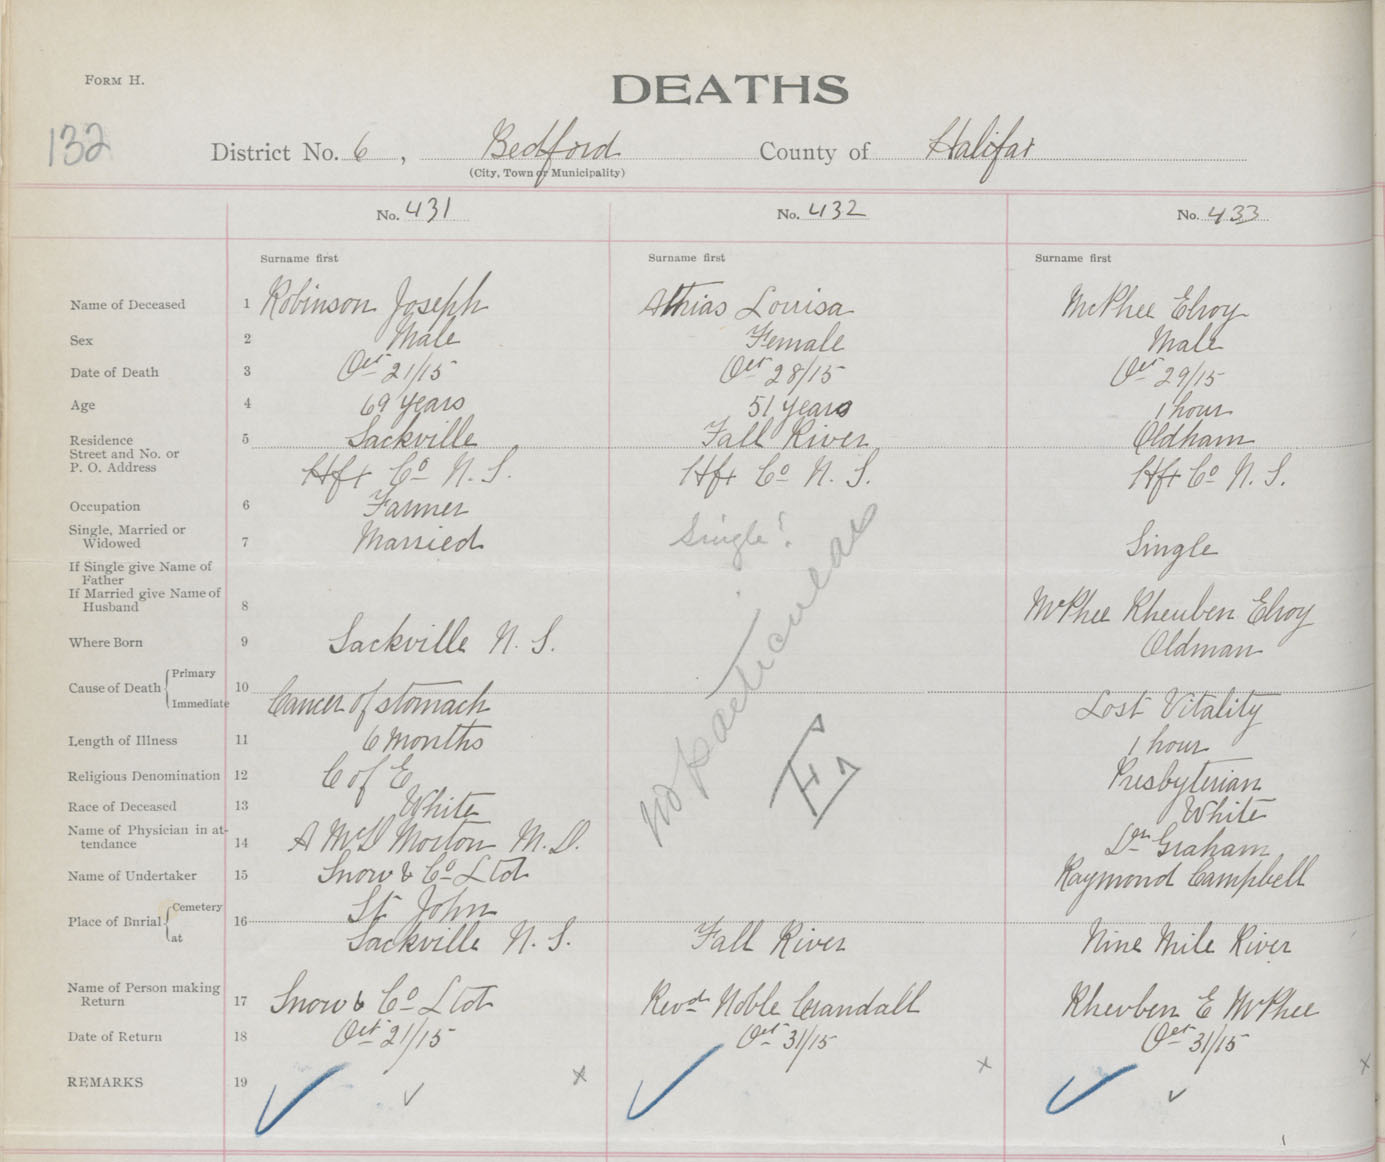 FORM H.
DEATHS
132
District No. 6, Bedford County of Halifax
(City, Town or Municipality)
No. 431 No. 432 No. 433
Surname first Surname first Surname first
Name of Deceased 1 Robinson Joseph Athias Louisa McPhee Elroy
Sex 2 Male Female Male
Date of Death 3 Oct 21/15 Oct 28/15 Oct 29/15
Age 4 69 years 51 years 1 hour
Residence 5 Sackville Fall River Oldham
Street and No. or
P. O. Address Hfx Co N. S. Hfx Co N. S. Hfx Co N. S.
Occupation 6 Farmer
Single, Married or
Widowed 7 Married Single? Single
If Single give Name of
Father
If Married give Name of
Husband 8 McPhee Rheuben Elroy
Where Born 9 Sackville N. S. Oldman
Cause of Death Primary 10
Immediate Cancer of stomach Lost Vitality
Length of Illness 11 6 Months 1 hour
Religious Denomination 12 C of E Presbyterian
Race of Deceased 13 White White
Name of Physician in at-
tendance 14 A McD Morton M. D. Dr Graham
Name of Undertaker 15 Snow & Co Ltd Raymond Campbell
Place of Burial Cemetery 16 St John
at Sackville N. S. Fall River Nine Mile River
no particulars
Name of Person making
Return 17 Snow & Co Ltd Revd Noble Crandall Rheuben E McPhee
Date of Return 18 Oct 21/15 Oct 31/15 Oct 31/15
REMARKS 19